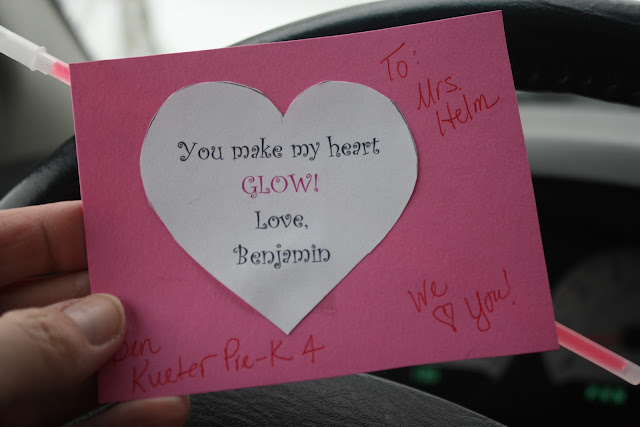 To:
Mrs.
Helm
You make my heart
GLOW!
Love,
Benjamin
We ♡ You!
Ben
Kueter Pre-K 4